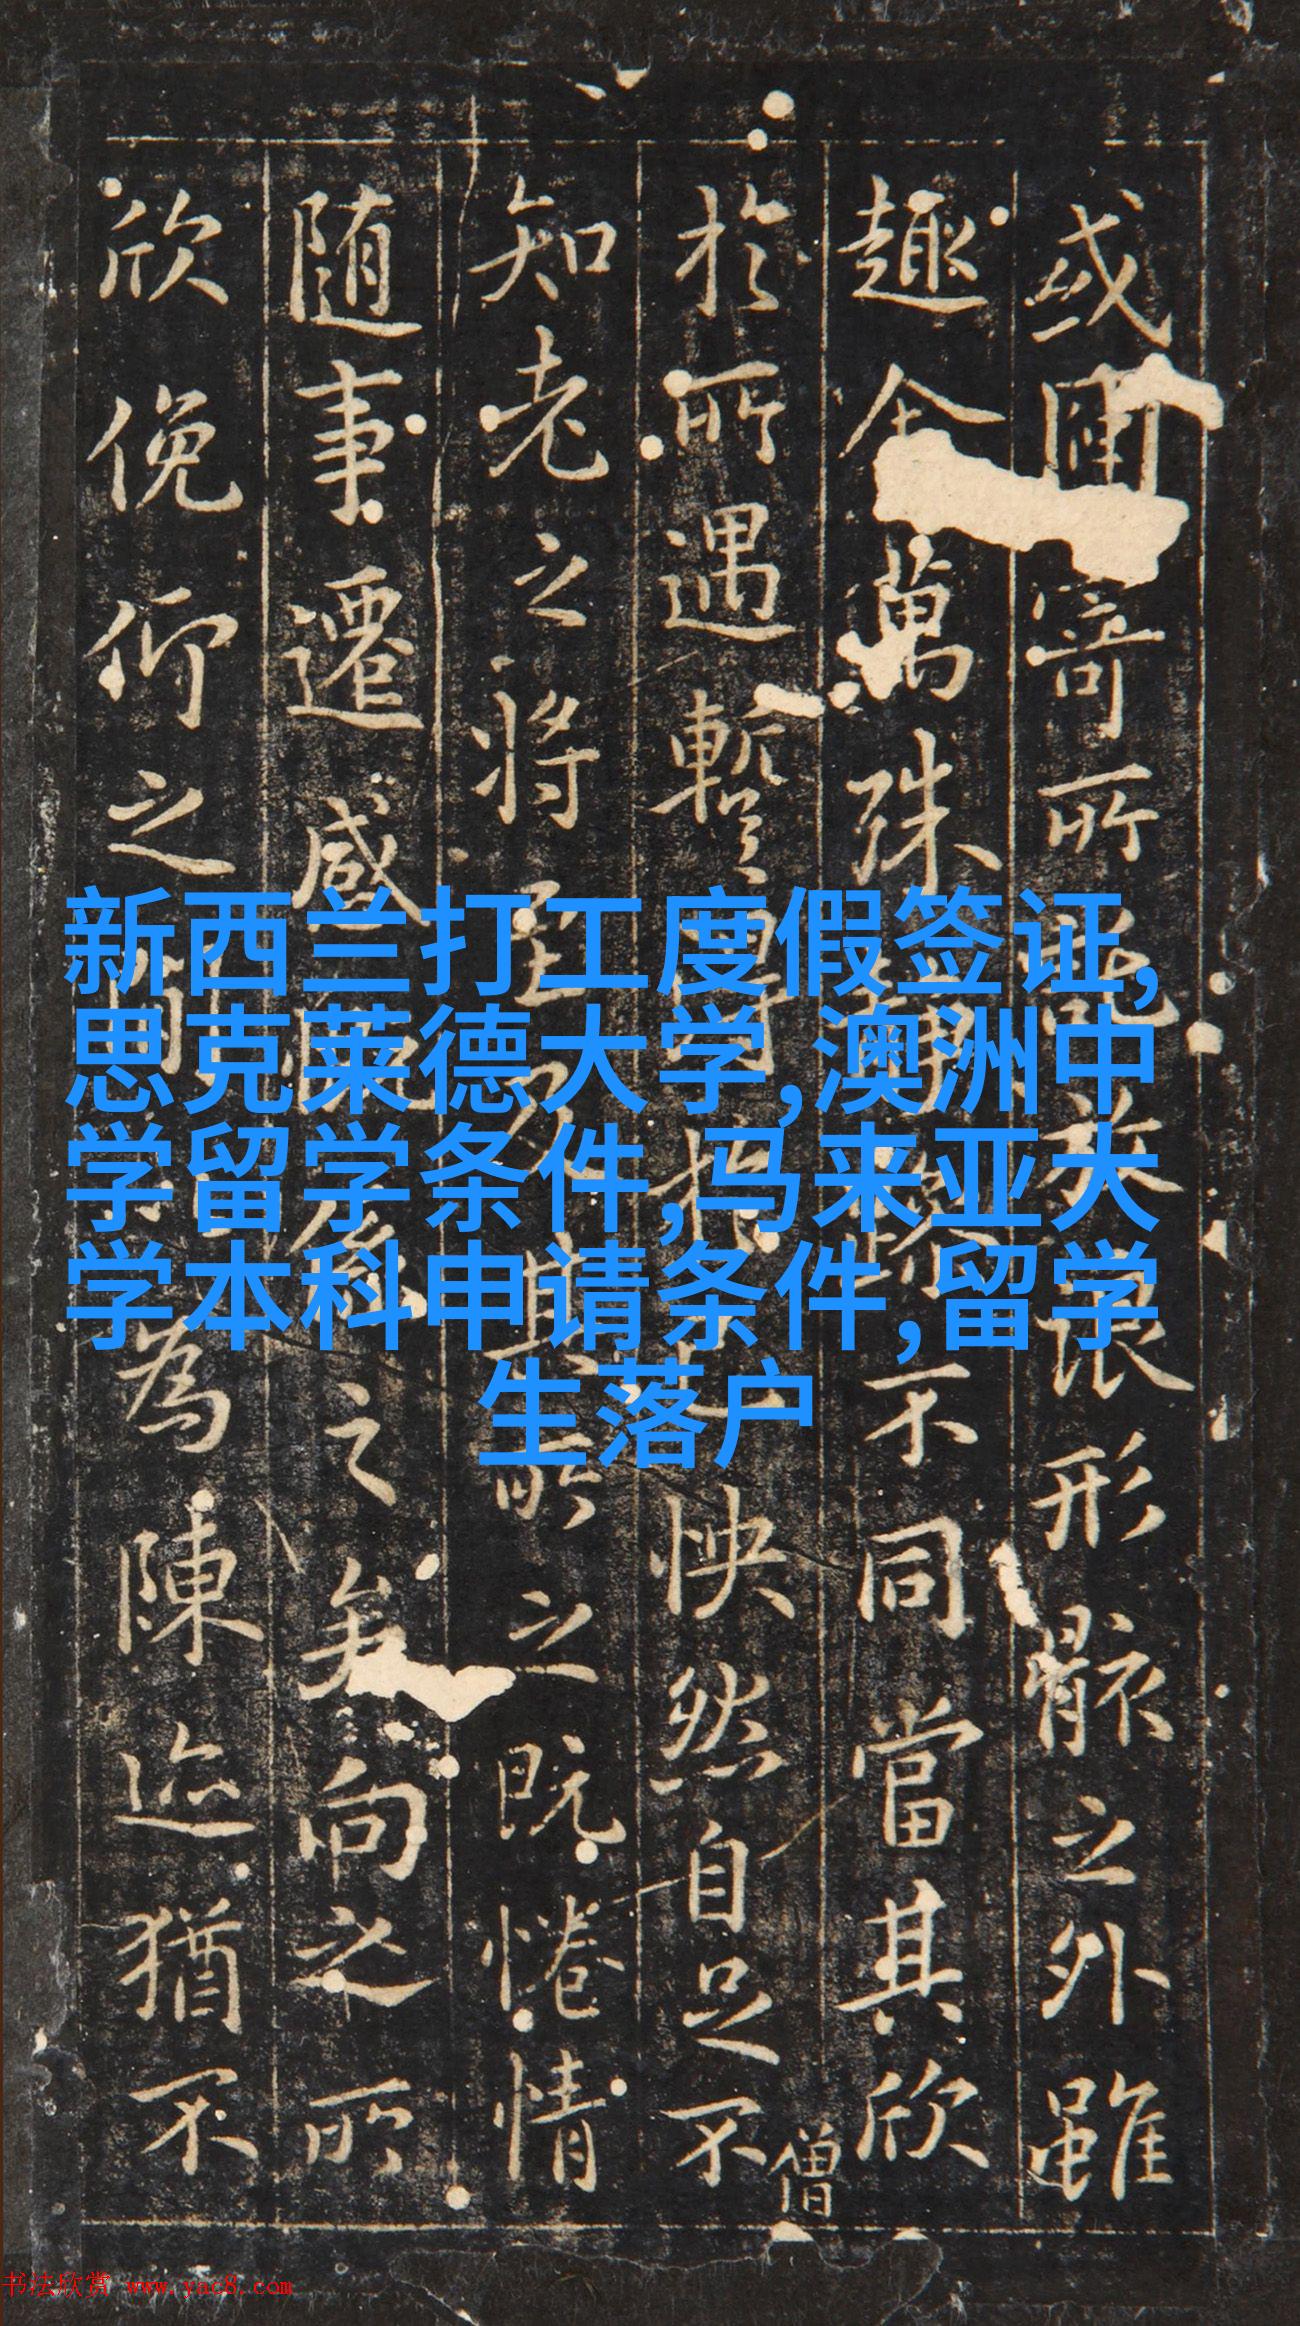 或因寄所託放浪形骸之外雖
趣舍萬殊靜躁不同當其欣
於所遇暫得於己怏然自足不
僧
知老之將至及其所之既惓情
随事遷感慨係之矣向之所
欣俛仰之間以為陳迹猶不
新西兰打工度假签证,
思克莱德大学,澳洲中
学留学条件,马来亚大
学本科申请条件,留学
生落户
书法欣赏 www.yac8.com